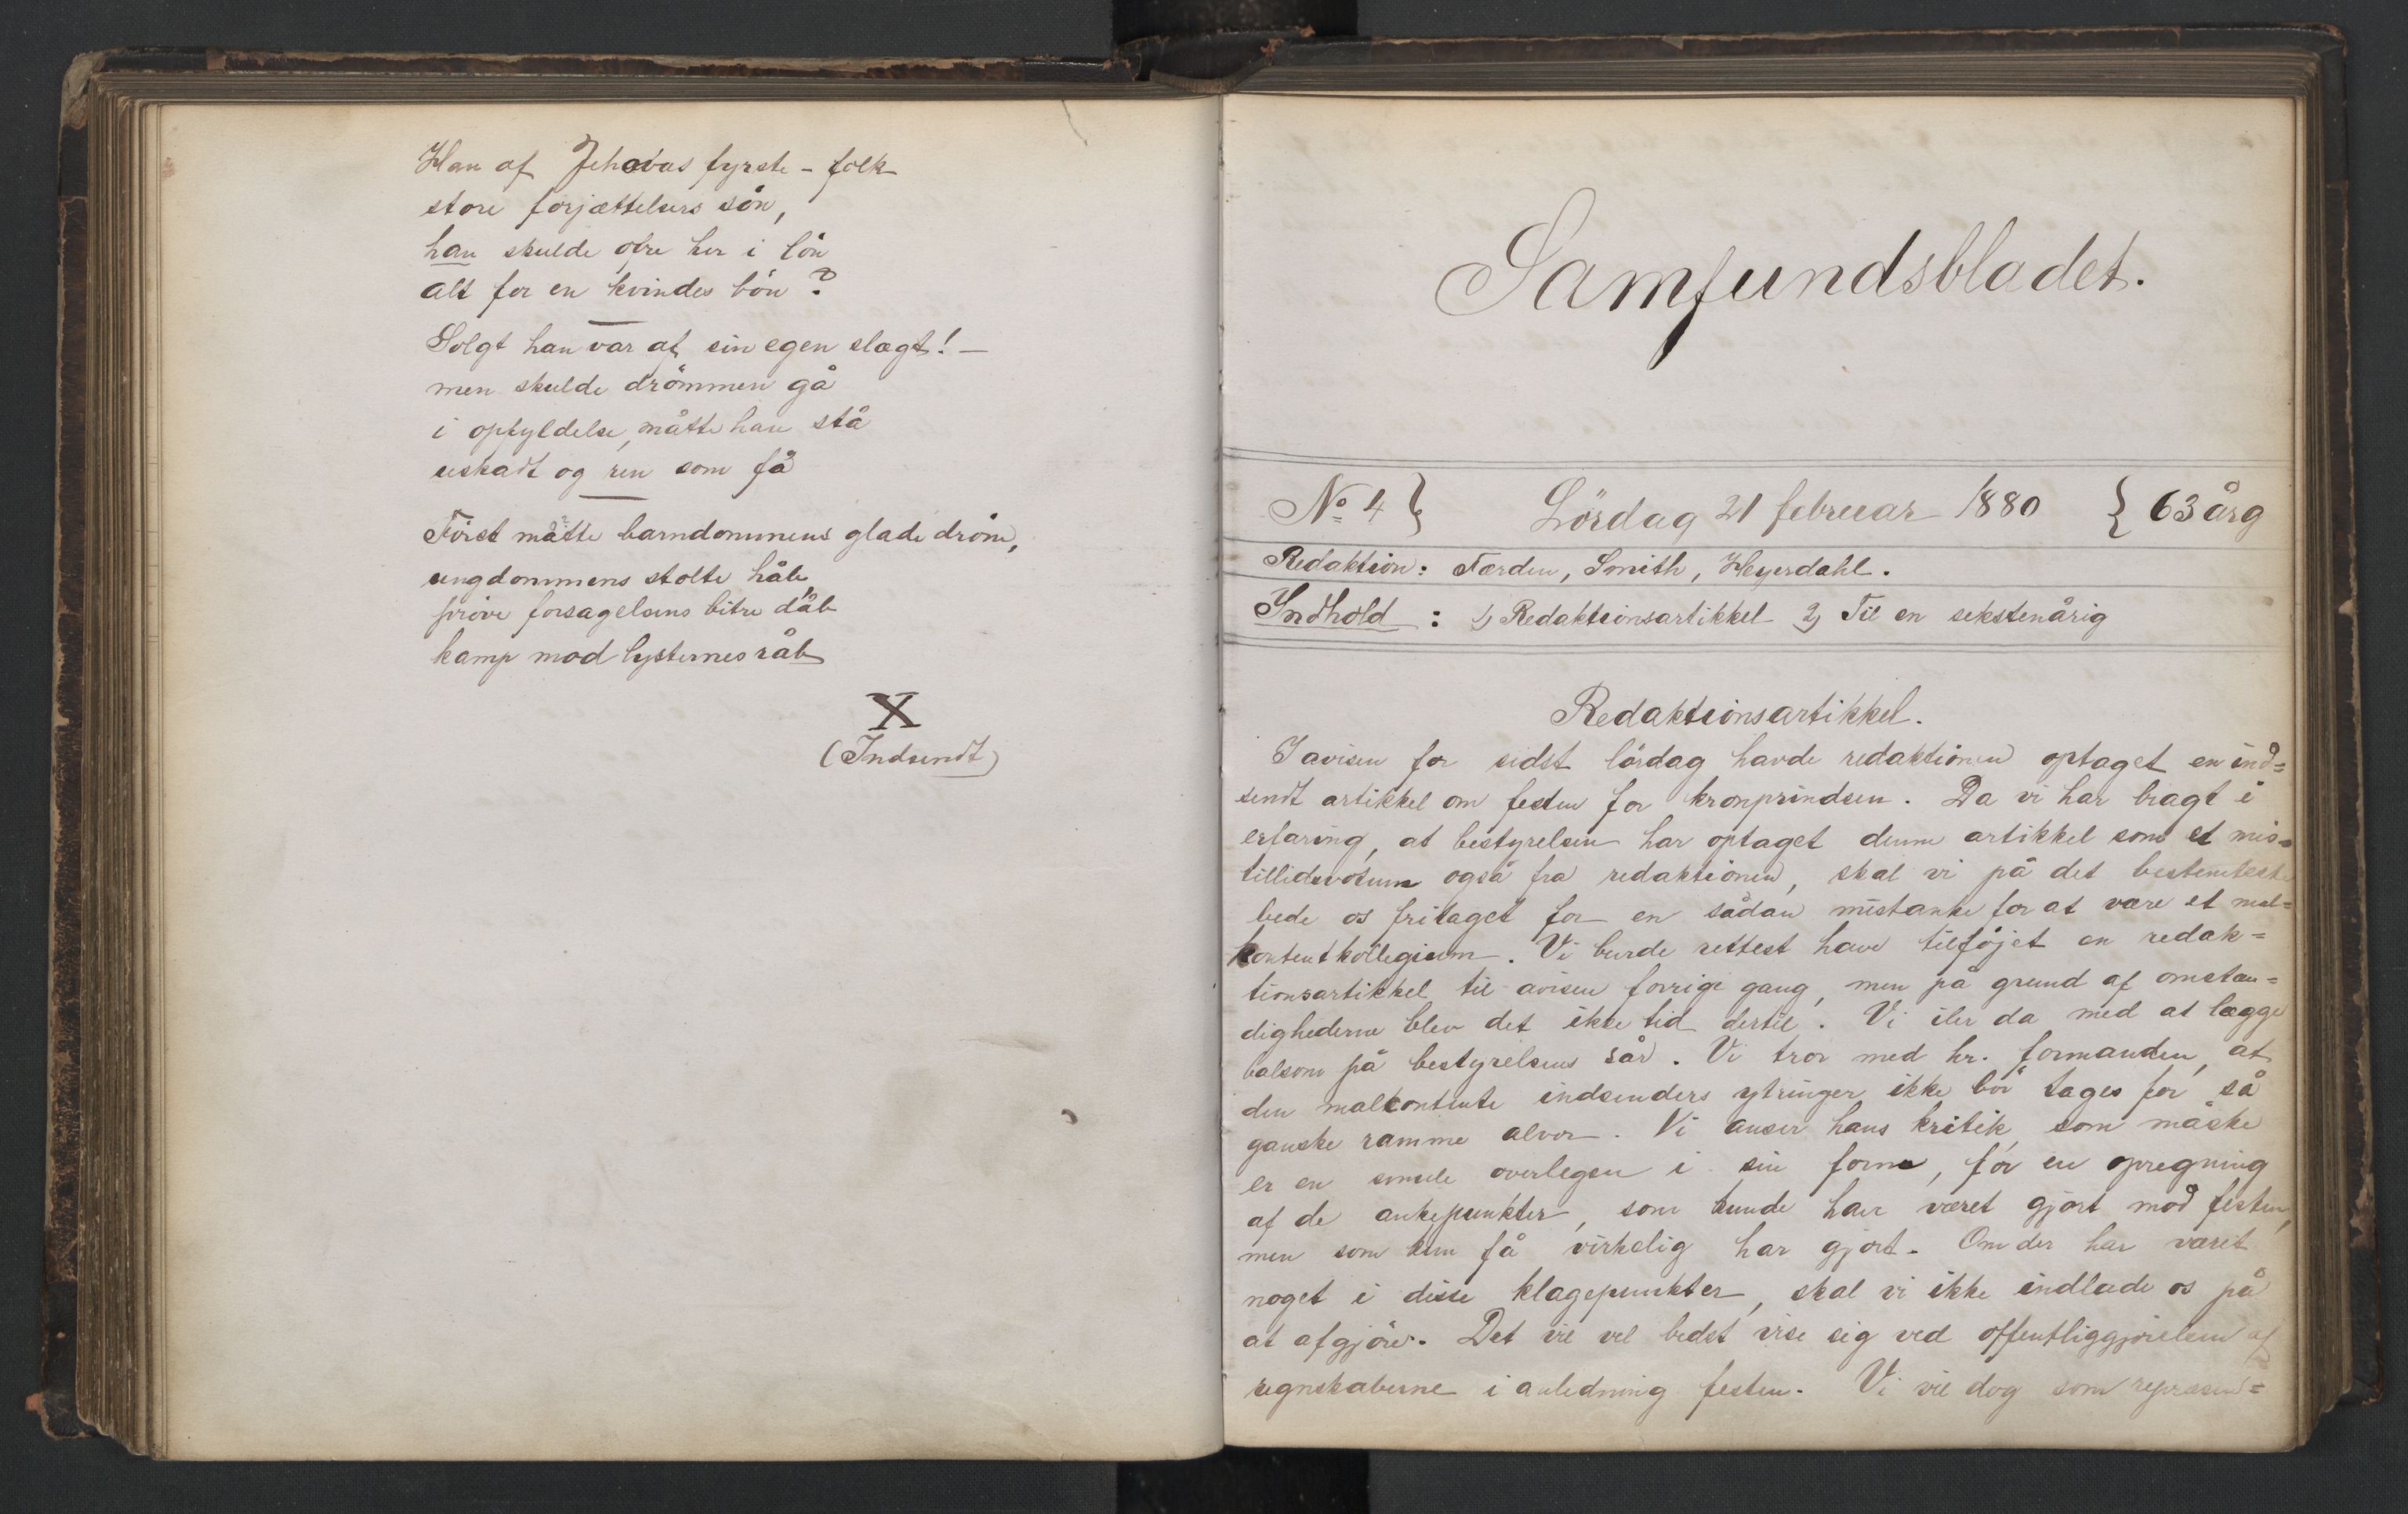 Han af Jehovas fyrste-folk
store forjættelsers sön,
han skulde ofre her i lön
alt for en kvindes bön?
Solgt han var af sin egen slægt! –
men skulde drömmen gå
i opfyldelse, måtte han stå
uskadt og ren som få
Först måtte barndommens glade dröm,
ungdommens stolte håb,
pröve forsagelsens bitre dåb
kamp mod lysternes råb
X
(Indsendt)
Samfundsbladet.
No 4 } Lördag 21 februar 1880 { 63 årg
Redaktion: Færden, Smith, Heyerdahl.
Indhold: 1) Redaktionsartikkel 2) Til en sekstenårig
Redaktionsartikkel.
I avisen for sidst lördag havde redaktionen optaget en ind=
sendt artikkel om festen for kronprindsen. Da vi har bragt i
erfaring, at bestyrelsen har optaget denne artikkel som et mis=
tillidsvotum også fra redaktionen, skal vi på det bestemteste
bede os fritaget for en sådan mistanke for at være et mal=
kontentkollegium. Vi burde rettest have tilföjet en redak=
tionsartikkel til avisen forrige gang, men på grund af omstæn=
dighederne blev det ikke tid dertil. Vi iler da med at lægge
balsom på bestyrelsens sår. Vi tror med hr. formanden, at
den malkontente indsenders ytringer ikke bör tages for så
ganske ramme alvor. Vi anser hans kritik, som måske
er en smule overlegen i sin form, for en opregning
af de ankepunkter, som kunde have været gjört mod festen,
men som kun få virkelig har gjort. Om der har været
noget i disse klagepunkter, skal vi ikke indlade os på
at afgjöre. Det vil vel bedst vise sig ved offentliggjörelsen af
regnskaberne i anledning festen. Vi vil dog som repræsen=